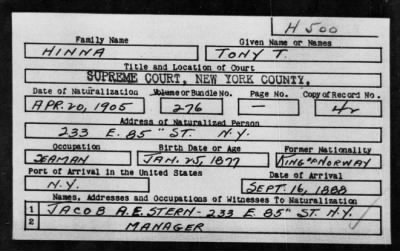 H 500
Family Name Given Name or Names
HINNA TONY T.
Title and Location of Court
SUPREME COURT, NEW YORK COUNTY.
Date of Naturalization Volume or Bundle No. Page No. Copy of Record No.
APR. 20, 1905 276 — 42
Address of Naturalized Person
233 E. 85" ST. N.Y.
Occupation Birth Date or Age Former Nationality
SEAMAN JAN. 25, 1877 KING OF NORWAY
Port of Arrival in the United States Date of Arrival
N.Y. SEPT. 16, 1888
Names, Addresses and Occupations of Witnesses To Naturalization
1 JACOB A.E. STERN - 233 E. 85" ST. N.Y.
2 MANAGER